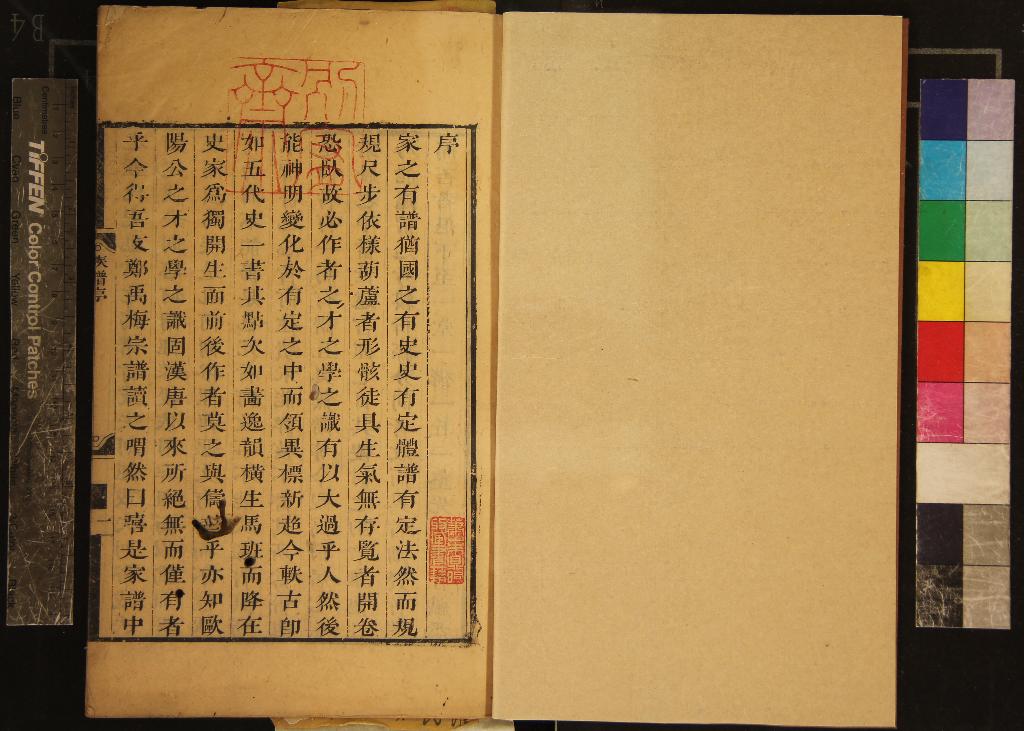 序
家之有譜猶國之有史史有定體譜有定法然而規
規尺步依樣葫蘆者形骸徒具生氣無存覽者開卷
恐臥故必作者之才之學之識有以大過乎人然後
能神明變化於有定之中而領異標新趋今軼古卽
如五代史一書其點次如畵逸韻橫生馬班而降在
史家爲獨開生面前後作者莫之與儔乎亦知歐
陽公之才之學之識固漢唐以來所絕無而僅有者
乎今得吾友鄭禹梅宗譜讀之喟然曰嘻是家譜中
族譜序
一
TIFFEN Color Control Patches
Centimetres
Blue
Cyan
Green
Yellow
Red
Black
B4